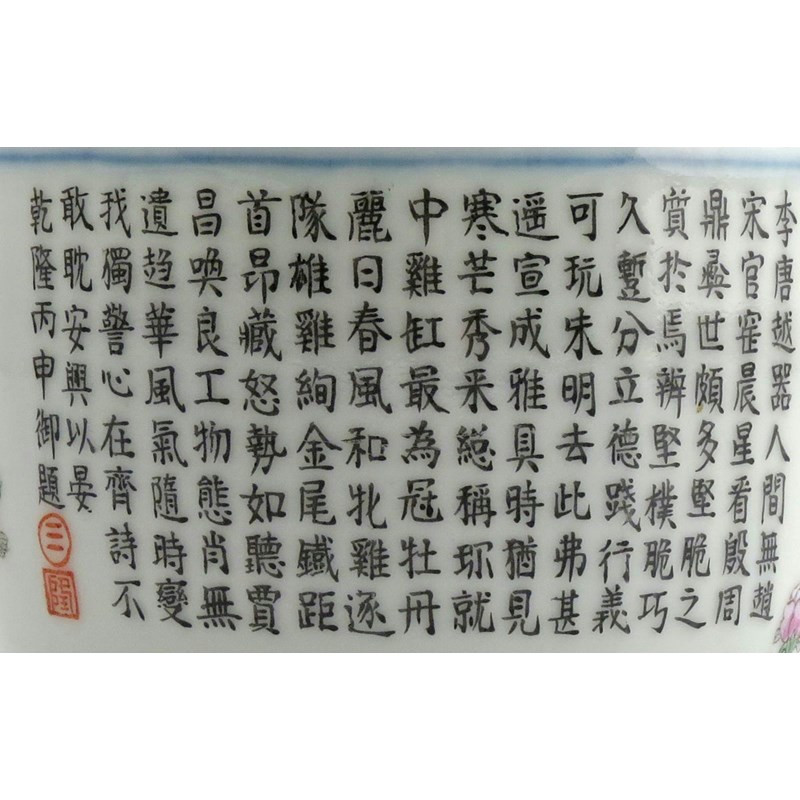 李唐越器人間無趙
宋官窑晨星看殷周
鼎彞世頗多堅脆之
質於焉辨堅樸脆巧
久蹔分立德踐行義
可玩朱明去此弗甚
遥宣成雅具時猶見
寒芒秀采緫稱珎就
中雞缸最為冠牡丹
麗日春風和牝雞逐
隊雄雞絢金尾鐵距
首昂藏怒勢如聽賈
昌喚良工物態肖無
遺趋華風氣隨時變
我獨警心在齊詩不
敢耽安興以晏
乾隆丙申御題